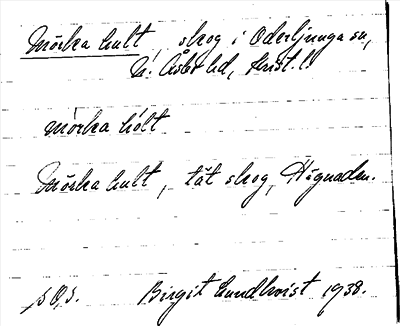 Mörka hult, skog i Oderljunga sn,
N. Åsbo hd, Krist. l.
mörka hólt
Mörka hult, tät skog, Hägnaden.
s. O. s. Birgit Lundkvist 1938.